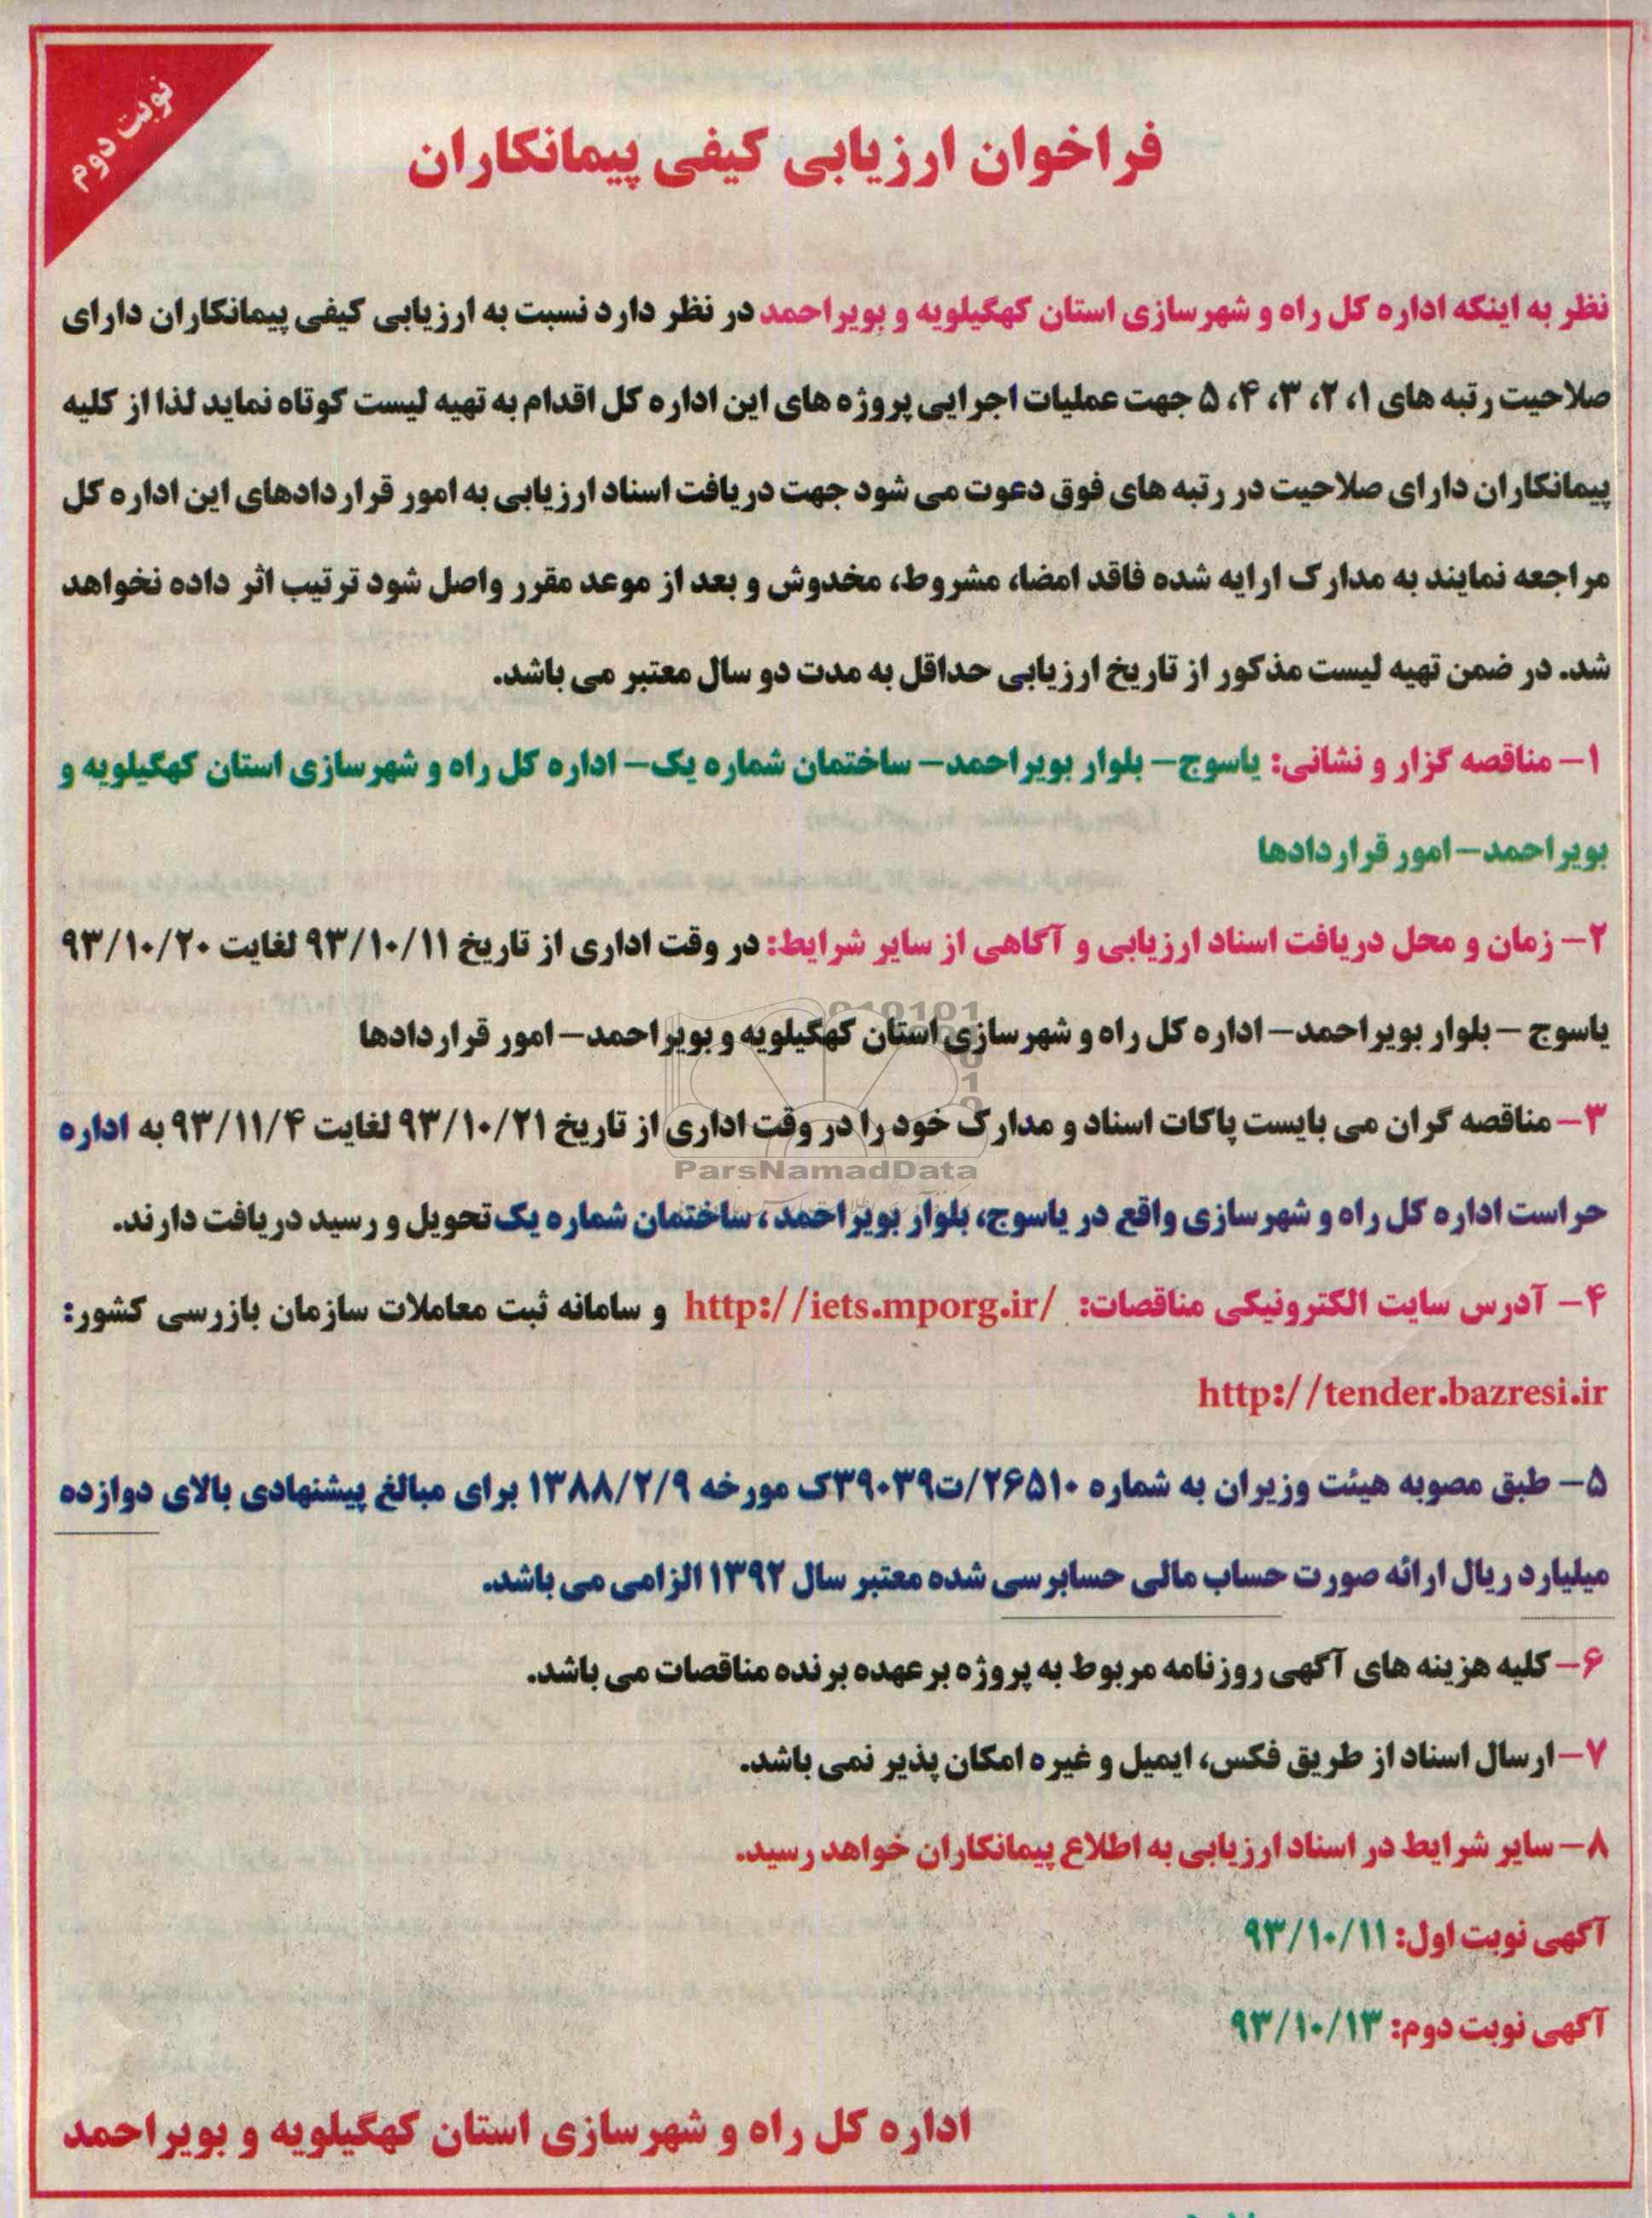 نوبت دوم
فراخوان ارزیابی کیفی پیمانکاران
نظر به اینکه اداره کل راه و شهرسازی استان کهگیلویه و بویراحمد در نظر دارد نسبت به ارزیابی کیفی پیمانکاران دارای
صلاحیت رتبه های ۱، ۲، ۳، ۴، ۵ جهت عملیات اجرایی پروژه های این اداره کل اقدام به تهیه لیست کوتاه نماید لذا از کلیه
پیمانکاران دارای صلاحیت در رتبه های فوق دعوت می شود جهت دریافت اسناد ارزیابی به امور قراردادهای این اداره کل
مراجعه نمایند به مدارک ارایه شده فاقد امضا، مشروط، مخدوش و بعد از موعد مقرر واصل شود ترتیب اثر داده نخواهد
شد. در ضمن تهیه لیست مذکور از تاریخ ارزیابی حداقل به مدت دو سال معتبر می باشد.
۱- مناقصه گزار و نشانی: یاسوج- بلوار بویراحمد- ساختمان شماره یک- اداره کل راه و شهرسازی استان کهگیلویه و
بویراحمد- امور قراردادها
۲- زمان و محل دریافت اسناد ارزیابی و آگاهی از سایر شرایط: در وقت اداری از تاریخ ۹۳/۱۰/۱۱ لغایت ۹۳/۱۰/۲۰
یاسوج - بلوار بویراحمد- اداره کل راه و شهرسازی استان کهگیلویه و بویراحمد- امور قراردادها
۳- مناقصه گران می بایست پاکات اسناد و مدارک خود را در وقت اداری از تاریخ ۹۳/۱۰/۲۱ لغایت ۹۳/۱۱/۴ به اداره
ParsNamadData
حراست اداره کل راه و شهرسازی واقع در یاسوج، بلوار بویراحمد، ساختمان شماره یک تحویل و رسید دریافت دارند.
۴- آدرس سایت الکترونیکی مناقصات: http://iets.mporg.ir/ و سامانه ثبت معاملات سازمان بازرسی کشور:
http://tender.bazresi.ir
۵- طبق مصوبه هیئت وزیران به شماره ۲۶۵۱۰/ت۳۹۰۳۹ک مورخه ۱۳۸۸/۲/۹ برای مبالغ پیشنهادی بالای دوازده
میلیارد ریال ارائه صورت حساب مالی حسابرسی شده معتبر سال ۱۳۹۲ الزامی می باشد.
۶- کلیه هزینه های آگهی روزنامه مربوط به پروژه برعهده برنده مناقصات می باشد.
۷- ارسال اسناد از طریق فکس، ایمیل و غیره امکان پذیر نمی باشد.
۸- سایر شرایط در اسناد ارزیابی به اطلاع پیمانکاران خواهد رسید.
آگهی نوبت اول: ۹۳/۱۰/۱۱
آگهی نوبت دوم: ۹۳/۱۰/۱۳
اداره کل راه و شهرسازی استان کهگیلویه و بویراحمد